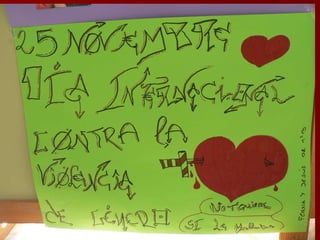 25 NOVEMBRE
DÍA INTERNACIONAL
CONTRA LA
VIOLENCIA
DE GÉNERO
NO TQUIERE
SI
Y JESUS DE